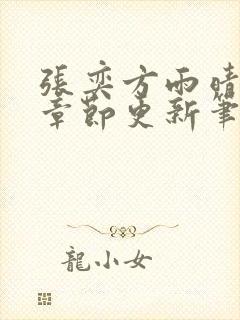 張奕方雨晴
章節更新筆
龍小女